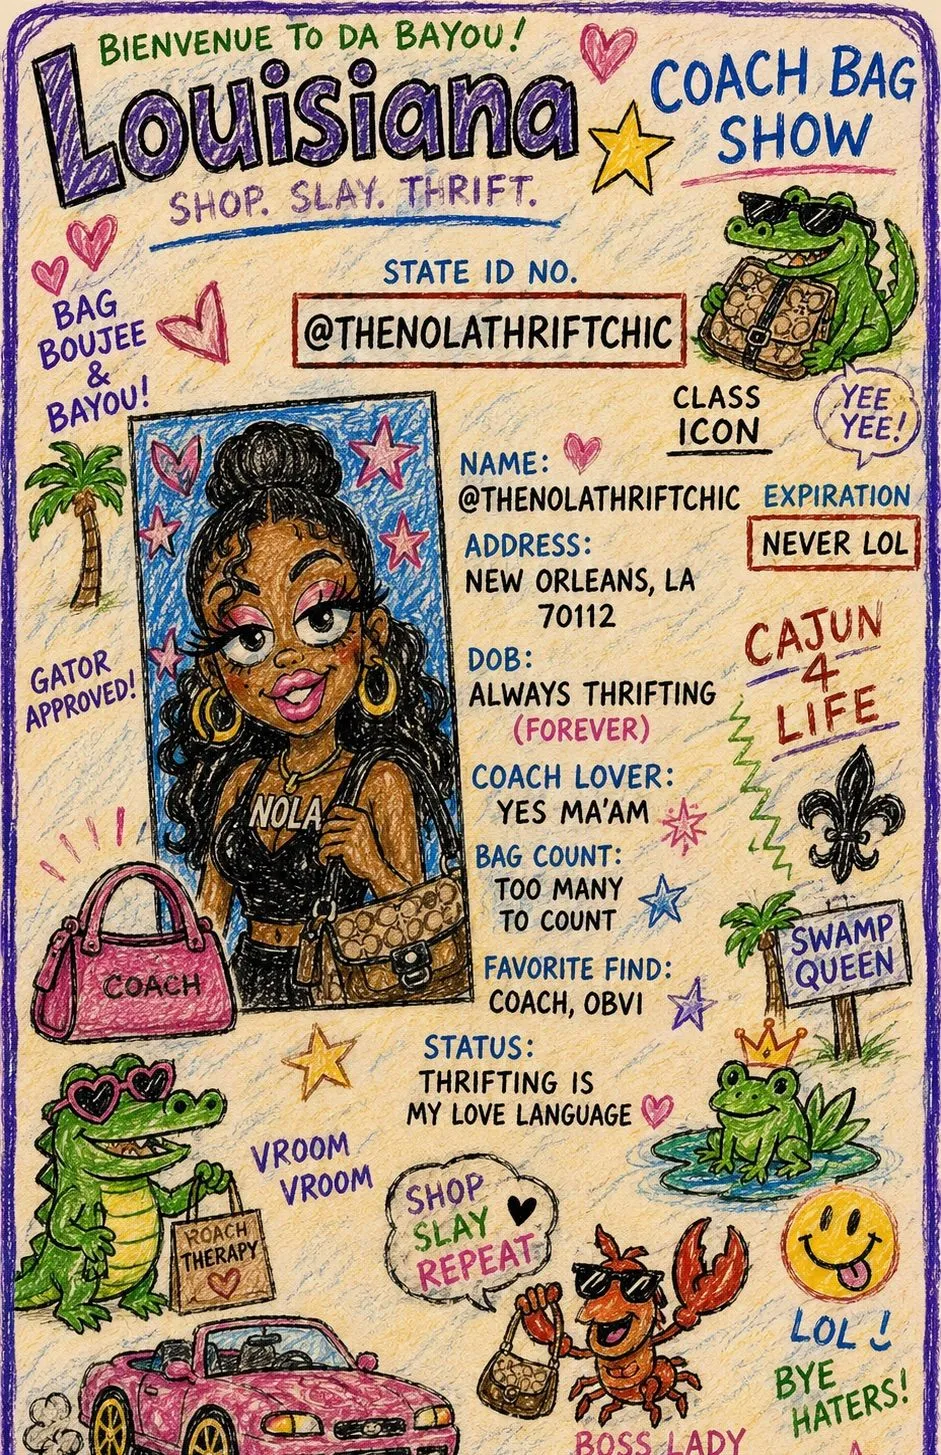 BIENVENUE TO DA BAYOU!
Louisiana
SHOP. SLAY. THRIFT.
COACH BAG
SHOW
STATE ID NO.
@THENOLATHRIFTCHIC
BAG
BOUJEE
&
BAYOU!
CLASS
ICON
YEE
YEE!
NAME:
@THENOLATHRIFTCHIC
EXPIRATION
NEVER LOL
ADDRESS:
NEW ORLEANS, LA
70112
DOB:
ALWAYS THRIFTING
(FOREVER)
CAJUN
4
LIFE
GATOR
APPROVED!
NOLA
COACH LOVER:
YES MA'AM
BAG COUNT:
TOO MANY
TO COUNT
FAVORITE FIND:
COACH, OBVI
SWAMP
QUEEN
COACH
STATUS:
THRIFTING IS
MY LOVE LANGUAGE
VROOM
VROOM
ROACH
THERAPY
SHOP
SLAY
REPEAT
LOL!
BYE
HATERS!
BOSS LADY